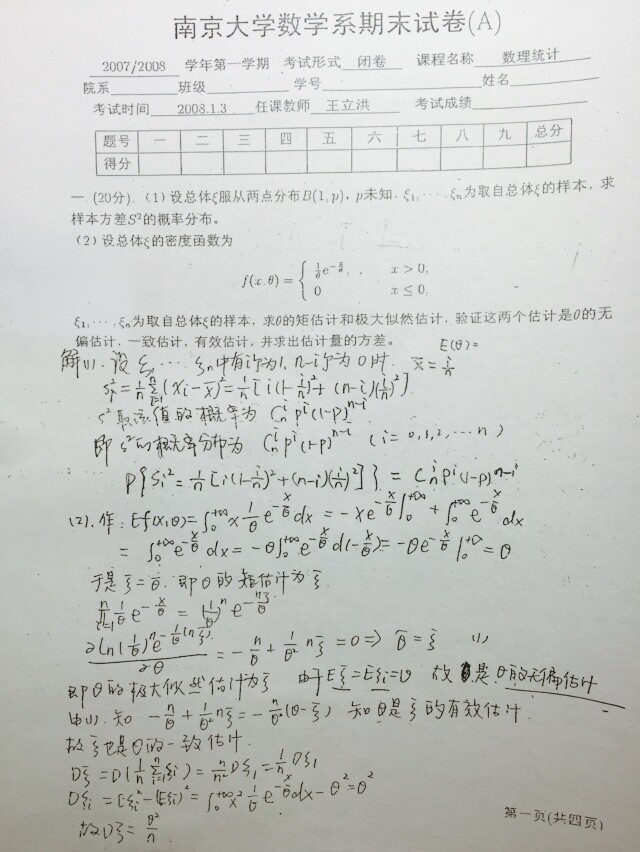 南京大学数学系期末试卷(A)
2007/2008 学年第一学期 考试形式 闭卷 课程名称 数理统计
院系 班级 学号 姓名
考试时间 2008.1.3 任课教师 王立洪 考试成绩
题号 一 二 三 四 五 六 七 八 九 总分
得分
一.(20分).(1)设总体ξ服从两点分布B(1,p),p未知.ξ₁,⋯,ξₙ为取自总体ξ的样本,求
样本方差S²的概率分布。
(2)设总体ξ的密度函数为
f(x,θ) = { 1/θ e^{-x/θ}, x > 0,
0 x ≤ 0,
ξ₁,⋯,ξₙ为取自总体ξ的样本,求θ的矩估计和极大似然估计,验证这两个估计是θ的无
偏估计,一致估计,有效估计,并求出估计量的方差。 E(θ)=
解(1). 设ξ₁⋯ξₙ中有i个为1, n-i个为0时. x̄=i/n
Sᵢ²=1/n Σ_{i=1}^{n}(xᵢ-x̄)²=1/n[i(1-i/n)²+(n-i)(i/n)²]
S²取该值的概率为 Cₙⁱpⁱ(1-p)ⁿ⁻ⁱ
即S²的概率分布为 Cₙⁱpⁱ(1-p)ⁿ⁻ⁱ (i=0,1,2,⋯n)
P{Sᵢ²=1/n[i(1-i/n)²+(n-i)(i/n)²]} = Cₙⁱpⁱ(1-p)ⁿ⁻ⁱ
(2). Ef(x,θ)=∫₀^{+∞} x 1/θ e^{-x/θ}dx = -xe^{-x/θ}|₀^{+∞} + ∫₀^{+∞} e^{-x/θ} dx
= ∫₀^{+∞} e^{-x/θ} dx = -θ∫₀^{+∞} e^{-x/θ} d(-x/θ) = -θe^{-x/θ}|₀^{+∞} = θ
于是ξ̄=θ. 即θ的矩估计为ξ̄.
∏_{i=1}^{n} 1/θ e^{-x/θ} = (1/θ)ⁿ e^{-nξ̄/θ}
∂ln(1/θ)ⁿe^{-1/θ(nξ̄)}/∂θ = -n/θ + 1/θ² nξ̄ = 0 ⇒ θ̄=ξ̄ (1)
即θ的极大似然估计为ξ̄ 由于Eξ̄=Eξᵢ=θ 故 是θ的无偏估计
由(1). 知 -n/θ + 1/θ² nξ̄ = -n/θ²(θ-ξ̄) 知θ是ξ̄的有效估计.
故ξ̄也是θ的一致估计.
Dξ̄ = D(1/n Σ_{i=1}^{n} ξᵢ) = n/n² Dξ₁ = 1/n Dξ₁
Dξᵢ = Eξᵢ²-(Eξᵢ)² = ∫₀^{+∞} x² 1/θ e^{-x/θ}dx - θ² = θ²
故Dξ̄ = θ²/n
第一页(共四页)